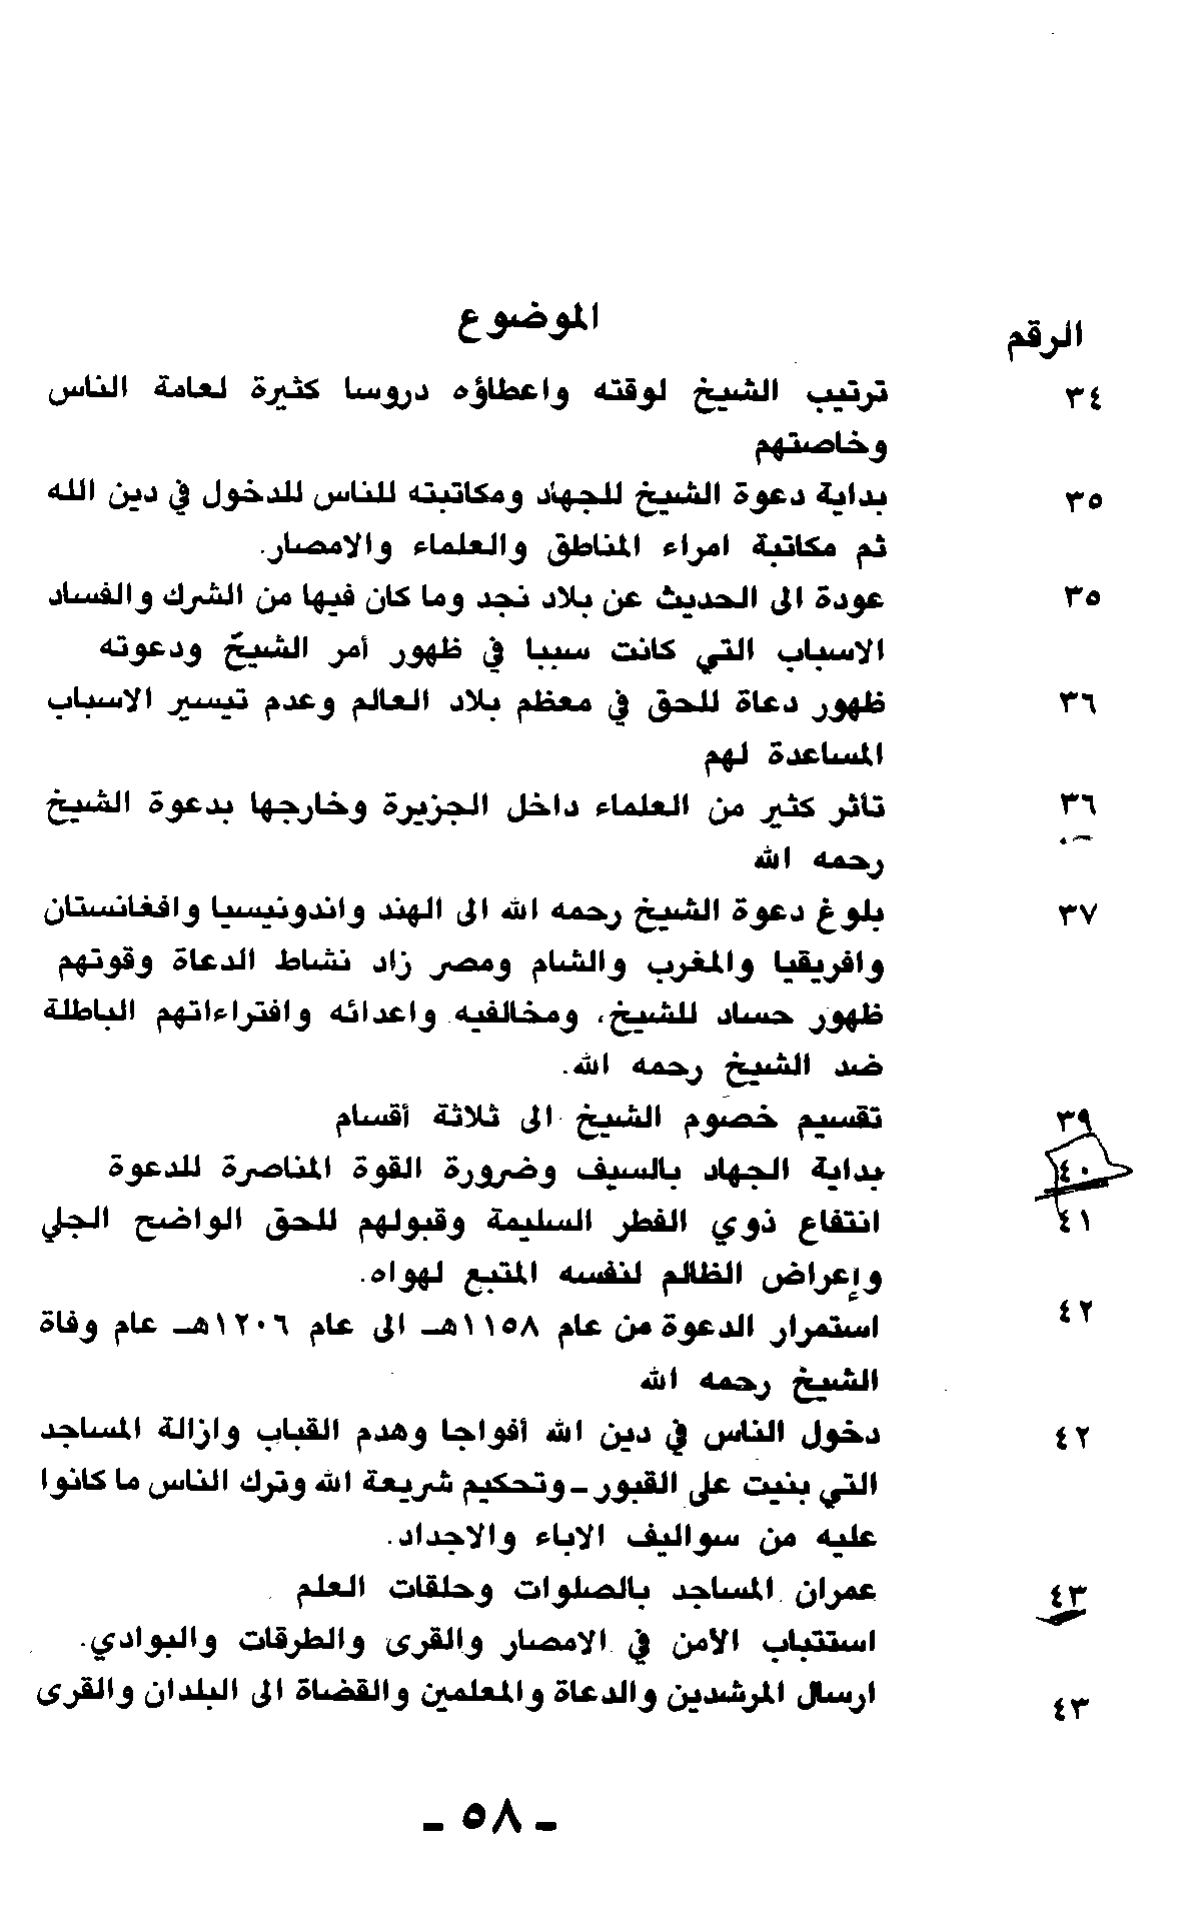 الرقم الموضوع
٣٤ ترتيب الشيخ لوقته واعطاؤه دروسا كثيرة لعامة الناس
وخاصتهم
٣٥ بداية دعوة الشيخ للجهاد ومكاتبته للناس للدخول في دين الله
ثم مكاتبة امراء المناطق والعلماء والامصار.
٣٥ عودة الى الحديث عن بلاد نجد وما كان فيها من الشرك والفساد
الاسباب التي كانت سببا في ظهور أمر الشيخ ودعوته
٣٦ ظهور دعاة للحق في معظم بلاد العالم وعدم تيسير الاسباب
المساعدة لهم
٣٦ تأثر كثير من العلماء داخل الجزيرة وخارجها بدعوة الشيخ
رحمه الله
٣٧ بلوغ دعوة الشيخ رحمه الله الى الهند واندونيسيا وافغانستان
وافريقيا والمغرب والشام ومصر زاد نشاط الدعاة وقوتهم
ظهور حساد للشيخ، ومخالفيه واعدائه وافتراءاتهم الباطلة
ضد الشيخ رحمه الله.
٣٩ تقسيم خصوم الشيخ الى ثلاثة أقسام
٤٠ بداية الجهاد بالسيف وضرورة القوة المناصرة للدعوة
٤١ انتفاع ذوي الفطر السليمة وقبولهم للحق الواضح الجلي
وإعراض الظالم لنفسه المتبع لهواه.
٤٢ استمرار الدعوة من عام ١١٥٨هـ الى عام ١٢٠٦هـ عام وفاة
الشيخ رحمه الله
٤٢ دخول الناس في دين الله أفواجا وهدم القباب وازالة المساجد
التي بنيت على القبور - وتحكيم شريعة الله وترك الناس ما كانوا
عليه من سواليف الاباء والاجداد.
٤٣ عمران المساجد بالصلوات وحلقات العلم
استتباب الأمن في الامصار والقرى والطرقات والبوادي.
٤٣ ارسال المرشدين والدعاة والمعلمين والقضاة الى البلدان والقرى
- ٥٨ -